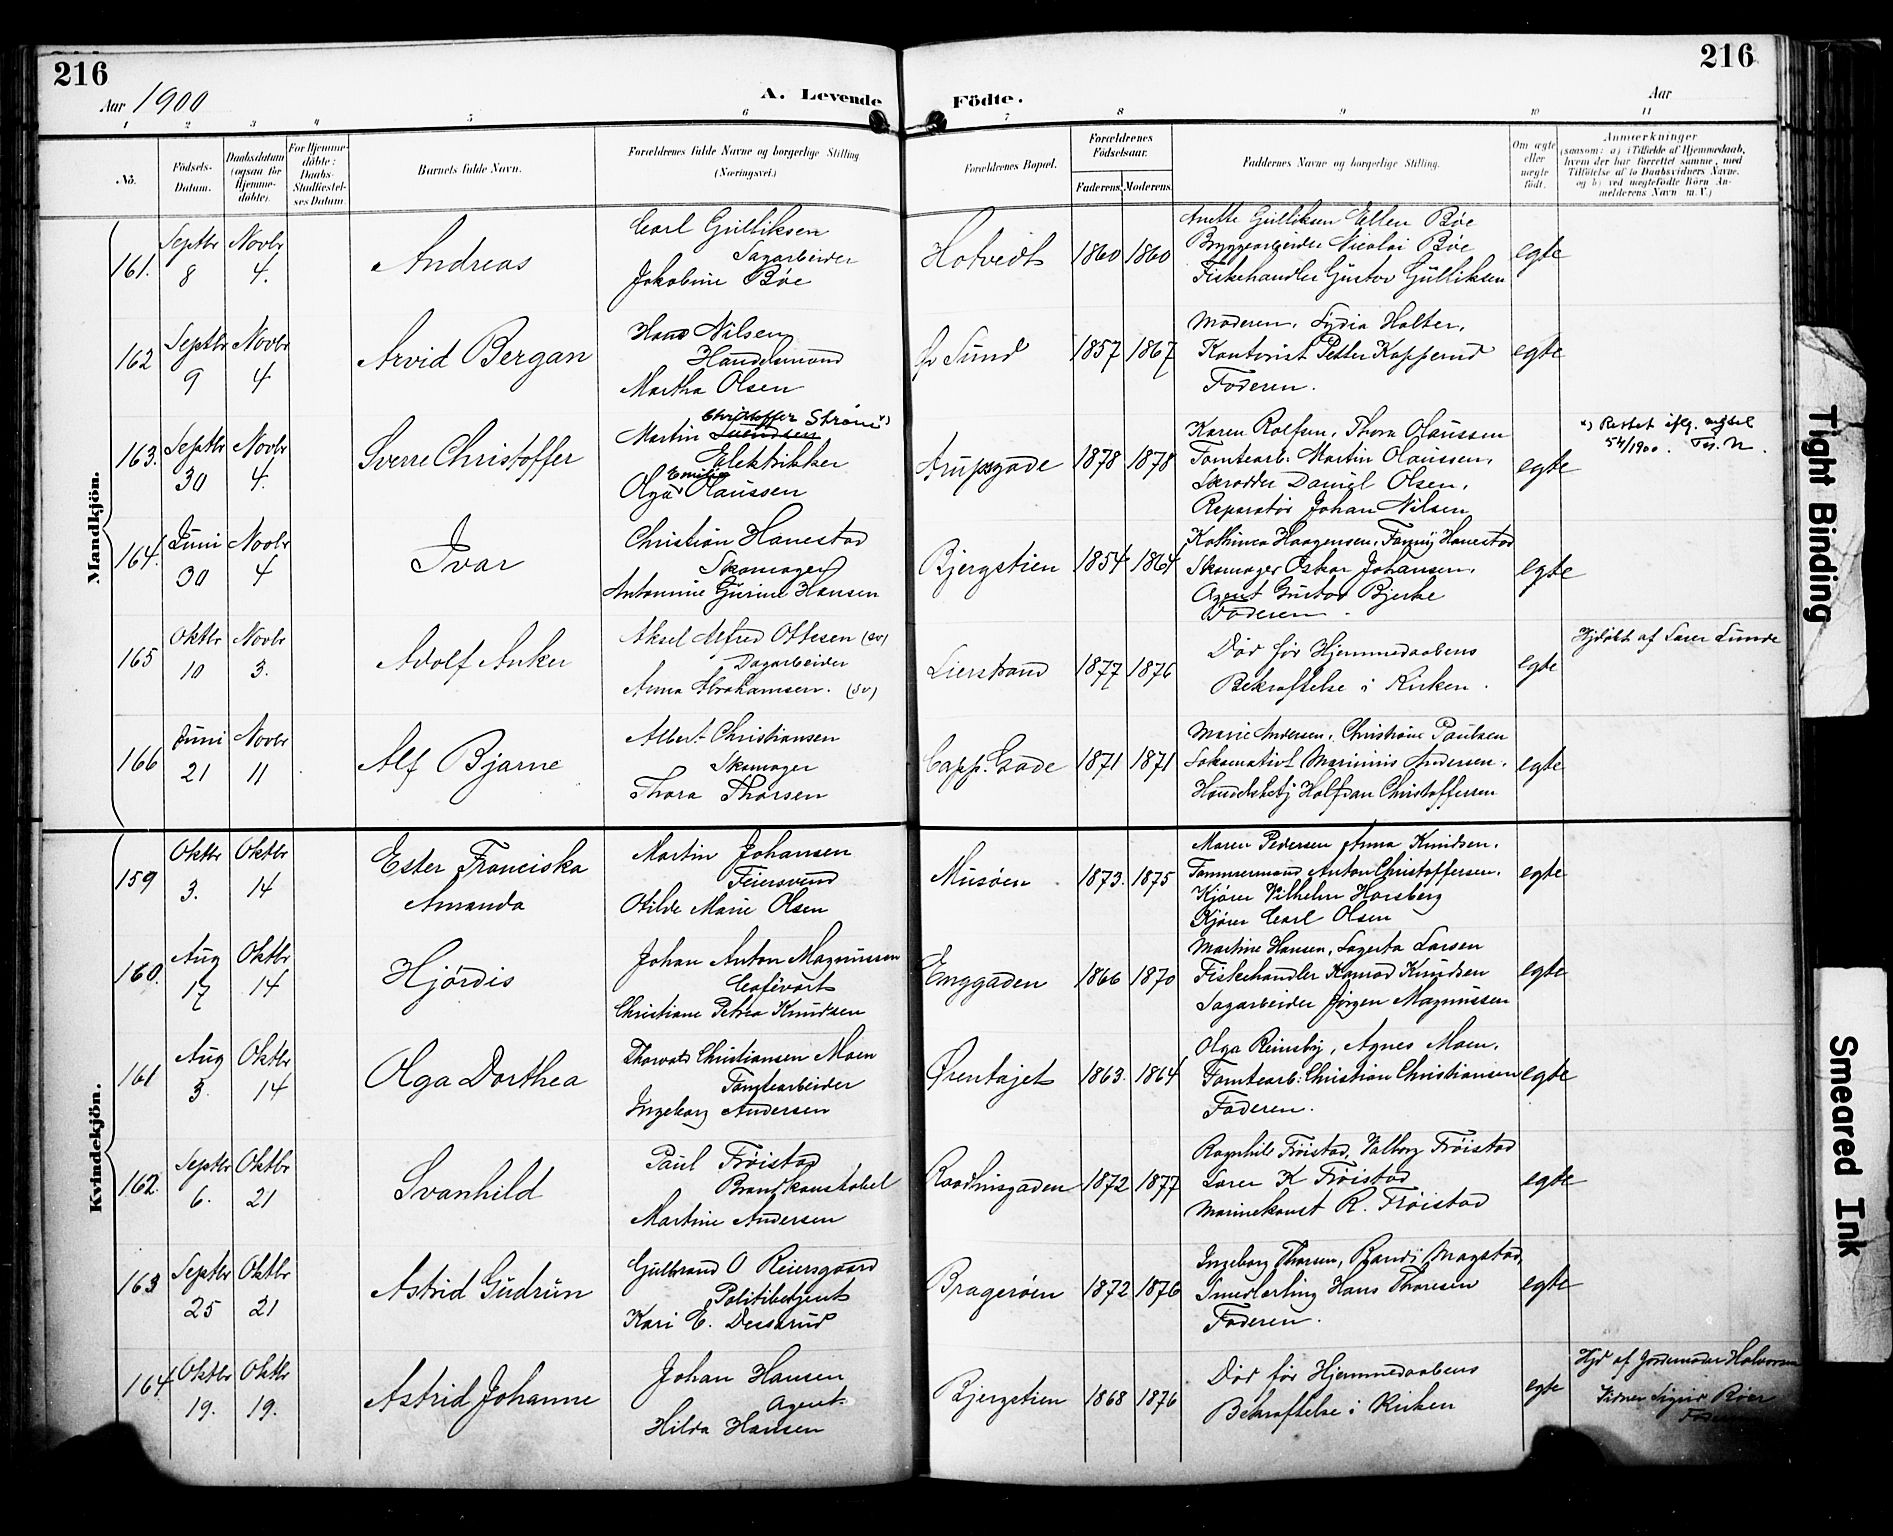 216
216
Aar 1900
A. Levende
Födte.
Aar
1 2 3 4 5 6 7 8 9 10 11
No.
Födsels-Datum.
Daabsdatum (ogsaa for Hjemme-döbte).
For Hjemme-döbte: Daabs-Stadfæstel-ses Datum.
Barnets fulde Navn.
Forældrenes fulde Navne og borgerlige Stilling (Næringsvei.)
Forældrenes Bopæl.
Forældrenes Födselsaar.
Faderens. Moderens.
Faddernes Navne og borgerlige Stilling.
Om ægte eller uægte födt.
Anmærkninger
(saasom: a) i Tilfælde af Hjemmedaab, hvem der har forrettet samme, med Tilföielse af to Daabsvidners Navne, og b) ved uægtefödte Börn An-melderens Navn m. V.)
Mandkjön.
161. Septbr 8 Novbr 4. Andreas
Carl Gulliksen
Sagarbeider
Jakobine Bøe
Hotvedt 1860 1860
Anethe Gulliksen Ellen Bøe
Bryggearbeider Nicolai Bøe
Fiskehandler Gustav Gulliksen
egte
162 Septbr 9 Novbr 4 Arvid Bergan
Hans Nilsen
Handelsmand
Martha Olsen
Sund 1857 1867
Moderen, Lydia Holter,
Kontorist Petter Kopperud
Faderen.
egte
163. Septbr 30 Novbr 4. Sverre Christoffer
Christoffer Strøm x)
Martin Svendsen
Elektrikker
Emilie
Olga Olaussen
Arupsgade 1878 1878
Karen Rolfsen, Thora Olaussen
Tomtearb: Martin Olaussen,
Skrædder Daniel Olsen,
Reparatør Johan Nilsen
egte
x) Rettet iflg.
54/1900.
164. Juni 30 Novbr 4 Ivar
Christian Hanestad
Skomager
Antonnine Gurine Hansen
Bjergstien 1854 1864
Kathinca Haagensen, Fanny Hanestad
Skomager Oskar Johansen,
Agent Gustav Bjerke
Faderen.
egte
165 Oktbr 10 Novbr 3. Adolf Anker
Aksel Alfred Ottesen (sv)
Sagarbeider
Anna Abrahamsen. (sv)
Lierstrand 1877 1876
Død før Hjemmedaabens
Bekræftelse i Kirken.
egte
Hjdøbt af Lærer Lunde
166 Juni 21 Novbr 11 Alf Bjarne
Albert Christiansen
Skomager
Thora Thorsen
Capp. Gade 1871 1871
Marie Andersen, Christiane Paulsen
Lokomotivf Marinius Andersen.
Handelsbetj Halfdan Christoffersen
egte
Kvindekjön.
159 Oktbr 3. Oktbr 14 Ester Franciska
Amanda
Martin Johansen
Feiersvend
Otilde Marie Olsen
Musøen 1873. 1875
Maren Pedersen Anna Knudsen,
Tømmermand Anton Christoffersen.
Kjører Vilhelm Horsberg
Kjører Carl Olsen
egte
160. Aug 17 Oktbr 14 Hjørdis
Johan Anton Magnussen
Cafévært
Christiane Petrea Knudsen
Enggaden 1866 1870
Martine Hansen, Lagerta Larsen
Fiskehandler Konrad Knudsen
Sagarbeider Jørgen Magnussen
egte
161 Aug 3. Oktbr 14 Olga Dorthea
Thorvald Christiansen Moen
Tomtearbeider
Ingeborg Andersen
Ørentajet 1863. 1864
Olga Reinsby, Agnes Moen.
Tomtearb: Christian Christiansen
Faderen.
egte
162. Septbr 6. Oktbr 21 Svanhild
Paul Frøistad
Brandkonstabel
Martine Andersen
Raadhusgaden 1872 1877
Ragnhild Frøistad, Valborg Frøistad
Lærer K Frøistad
Marinekonst R. Frøistad
egte
163 Septbr 25 Oktbr 21 Astrid Gudrun
Gulbrand O Reiersgaard
Politibetjent
Kari E. Desserud
Bragerøen 1872 1876
Ingeborg Thoresen, Randi Magstad,
Smedlærling Hans Thoresen
Faderen.
egte
164 Oktbr 19. Oktbr 19. Astrid Johanne
Johan Hansen
Agent
Hilda Hansen
Bjergstien 1868 1876
Død før Hjemmedaabens
Bekræftelse i Kirken
egte
Hjd af Jordemoder Halvorsen
Vidner Sigrid Röer
Tight Binding
Smeared Ink